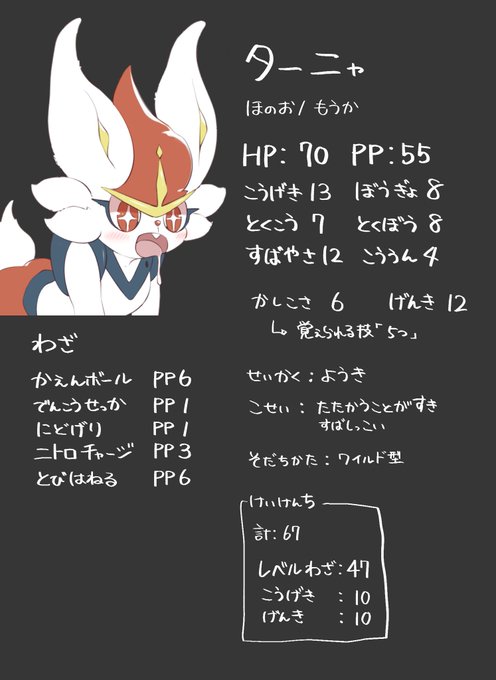 ターニャ
ほのお/もうか
HP: 70 PP: 55
こうげき 13 ぼうぎょ 8
とくこう 7 とくぼう 8
すばやさ 12 こううん 4
かしこさ 6 げんき 12
↳ 覚えられる技「5つ」
せいかく:ようき
こせい:たたかうことがすき
すばしっこい
そだちかた:ワイルド型
わざ
かえんボール PP 6
でんこうせっか PP 1
にどげり PP 1
ニトロチャージ PP 3
とびはねる PP 6
けいけんち
計: 67
レベルわざ: 47
こうげき : 10
げんき : 10